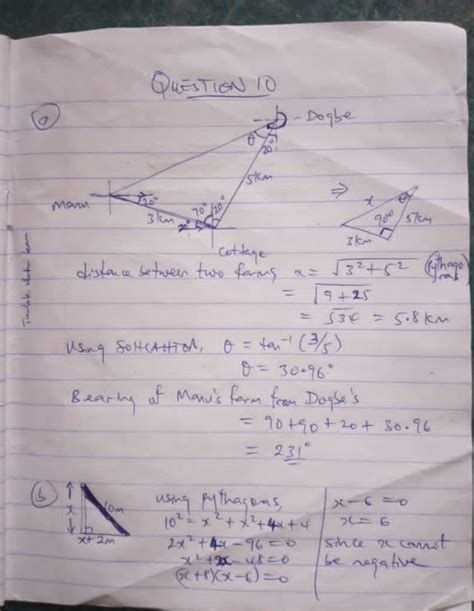 QUESTION 10
a
- Dogbe
θ
20°
5km
Manu
20°
3km
70° 20°
20°
Cottage
⇒
x
θ
90°
5km
3km
distance between two farms x = √3² + 5² (Pythago
= √9 + 25
= √34 = 5.8km
using SOHCAHTOA, θ = tan⁻¹ (3/5)
θ = 30.96°
Bearing of Manu's farm from Dogbe's
= 90 + 90 + 20 + 30.96
= 231°
b
x
10m
x + 2m
using pythagoras,
10² = x² + x² + 4x + 4
2x² + 4x - 96 = 0
x² + 2x - 48 = 0
(x + 8)(x - 6) = 0
x - 6 = 0
x = 6
since x cannot
be negative